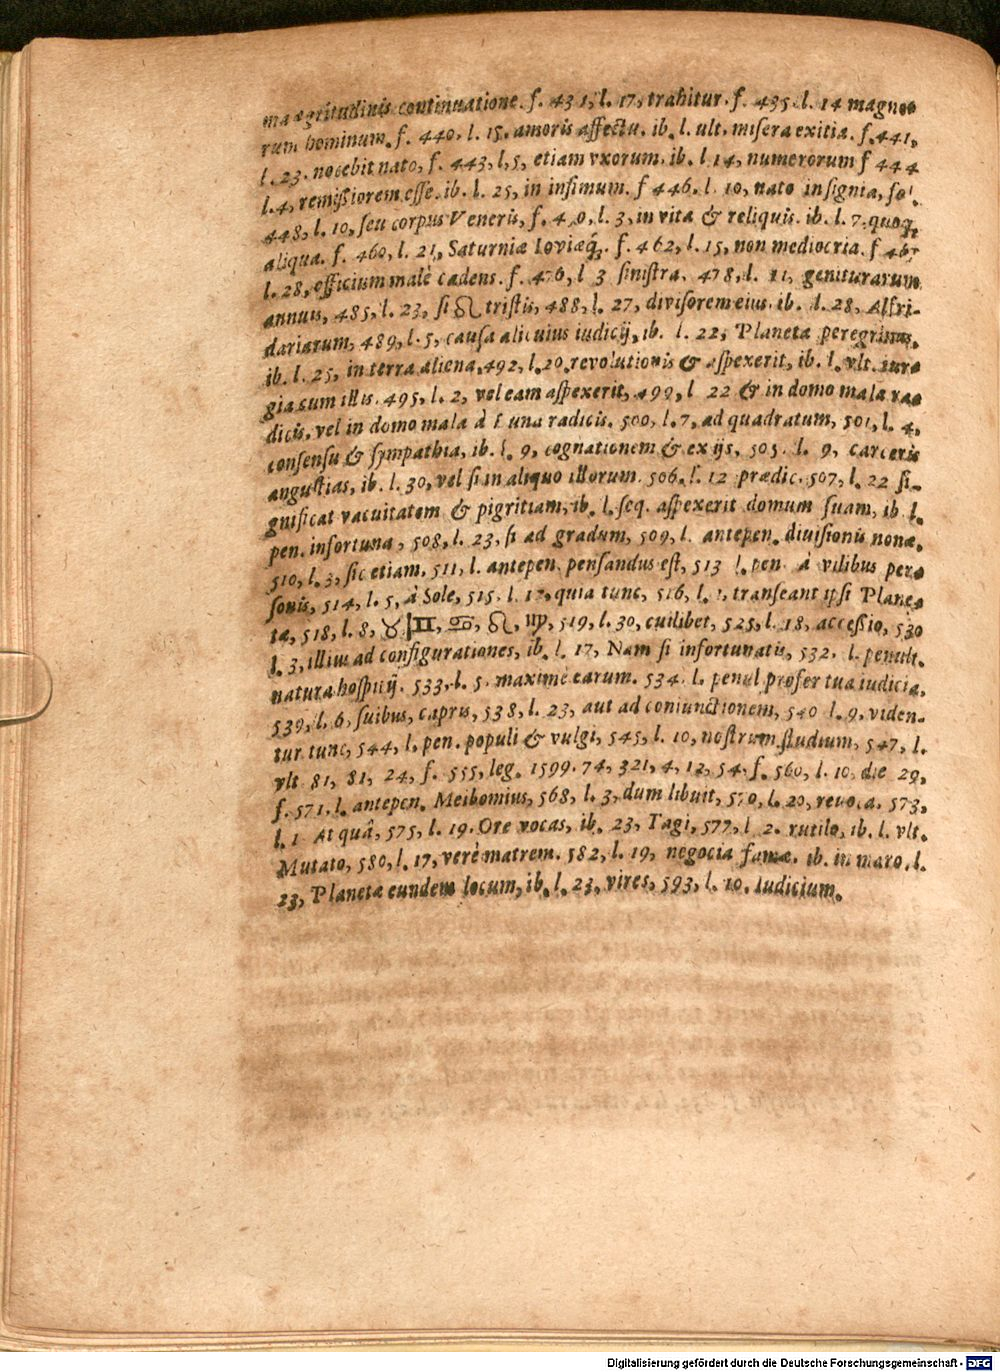 ma ægritudinis continuatione. f. 431, l. 17, trahitur. f. 435. l. 14 magno-
rum hominum. f. 440. l. 15, amoris affectu. ib. l. ult. misera exitia. f. 441,
l. 23. nocebit nato, f. 443, l, 5, etiam vxorum. ib. l 14, numerorum f 444
l. 4, remißiorem esse. ib. l. 25, in infimum. f 446. l. 10, nato insignia, fo
448, l. 10, seu corpus Veneris, f. 4 0, l. 3, in vita & reliquis. ib. l. 7. quoq;
aliqua. f. 460, l. 21, Saturniæ Ioviæq́;. f. 462, l. 15, non mediocria. f 467
l. 28, officium malè cadens. f. 476, l 3 sinistra. 478, l. 11, geniturarum
annuis, 485, l. 23, si ♌ tristis, 488, l. 27, divisorem eius. ib. l. 28, Alfri-
dariarum, 489, l. 5, causa alicuius iudicij, ib. l. 22, Planeta peregrinus,
ib. l. 25, in terra aliena, 492, l. 20. revolutionis & aspexerit, ib. l. vlt. iura
gia cum illis. 495, l. 2, vel eam aspexerit, 499, l 22 & in domo mala ra-
dicis, vel in domo mala à Luna radicis. 500, l. 7, ad quadratum, 501, l. 4,
consensu & sympathia, ib. l. 9, cognationem & ex ijs, 505. l. 9, carceris
angustias, ib. l. 30, vel si in aliquo illorum. 506. l. 12 prædic. 507, l. 22 si-
gnificat vacuitatem & pigritiam, ib. l. seq. aspexerit domum suam, ib l.
pen. infortuna, 508, l. 23, si ad gradum, 509, l. antepen. divisionis nonæ.
510, l. 3, sic etiam. 511, l. antepen. pensandus est, 513 l. pen. à vilibus per-
sonis, 514, l. 5, à Sole, 515. l. 17, quia tunc, 516, l. 1, transeant ipsi Plane-
tæ, 518, l. 8, ♉ ♊, ♋, ♌, ♍, 519, l. 30, cuilibet, 525, l. 18, acceßio, 530
l. 3, illius ad configurationes, ib. l. 17, Nam si infortunatis, 532. l. penult.
natura hospitij. 533, l. 5. maximè earum. 534. l. penul profer tua iudicia.
539, l. 6, suibus, capris, 538, l. 23, aut ad coniunctionem, 540 l. 9. viden-
tur tunc, 544, l. pen. populi & vulgi, 545, l. 10, nostrum studium, 547, l.
vlt 81, 81, 24, f. 555, leg. 1599. 74, 321, 4, 12, 54. f. 560, l. 10. die 29,
f. 571. l. antepen. Meibomius, 568, l. 3, dum libuit, 570, l. 20, revoca. 573,
l. 1 At quâ, 575, l. 19. Ore vocas, ib. 23, Tagi, 577, l 2. rutilo, ib. l. vlt.
Mutato, 580, l. 17, verè matrem. 582, l. 19, negocia famæ. ib. in maro. l.
23, Planeta eundem locum, ib. l. 23, vires, 593, l. 10. Iudicium.
Digitalisierung gefördert durch die Deutsche Forschungsgemeinschaft - DFG